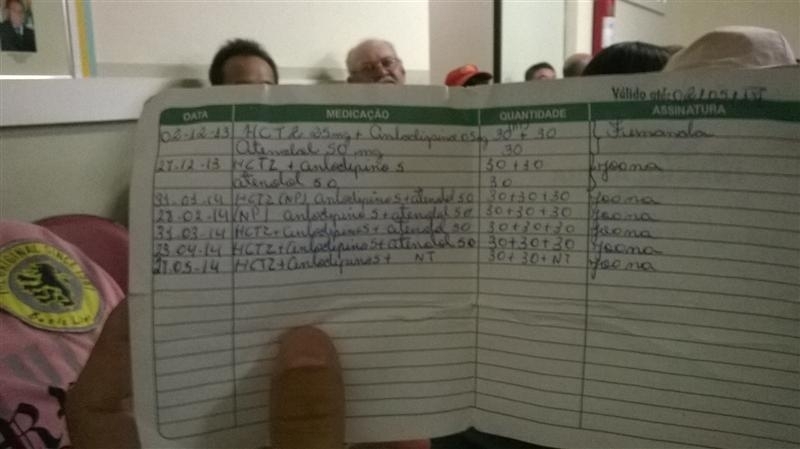 Válido até: 02/05/15
DATA MEDICAÇÃO QUANTIDADE ASSINATURA
02-12-13 HCTZ 25mg + Anlodipino 05mg 30 + 30 Fernanda
Atenolol 50 mg 30
27-12-13 HCTZ + Anlodipino 5 30+30 Joana
atenolol 50 30
31-01-14 HCTZ (NP) Anlodipino 5 + atenolol 50 30+30+30 Joana
28-02-14 (NP) Anlodipino 5 + atenolol 50 30+30+30 Joana
31-03-14 HCTZ + Anlodipino 5 + atenolol 50 30+30+30 Joana
29-04-14 HCTZ + Anlodipino 5 + Atenolol 50 30+30+30 Joana
27-05-14 HCTZ + Anlodipino 5 + NT 30+30+NT Joana
ORIGINAL